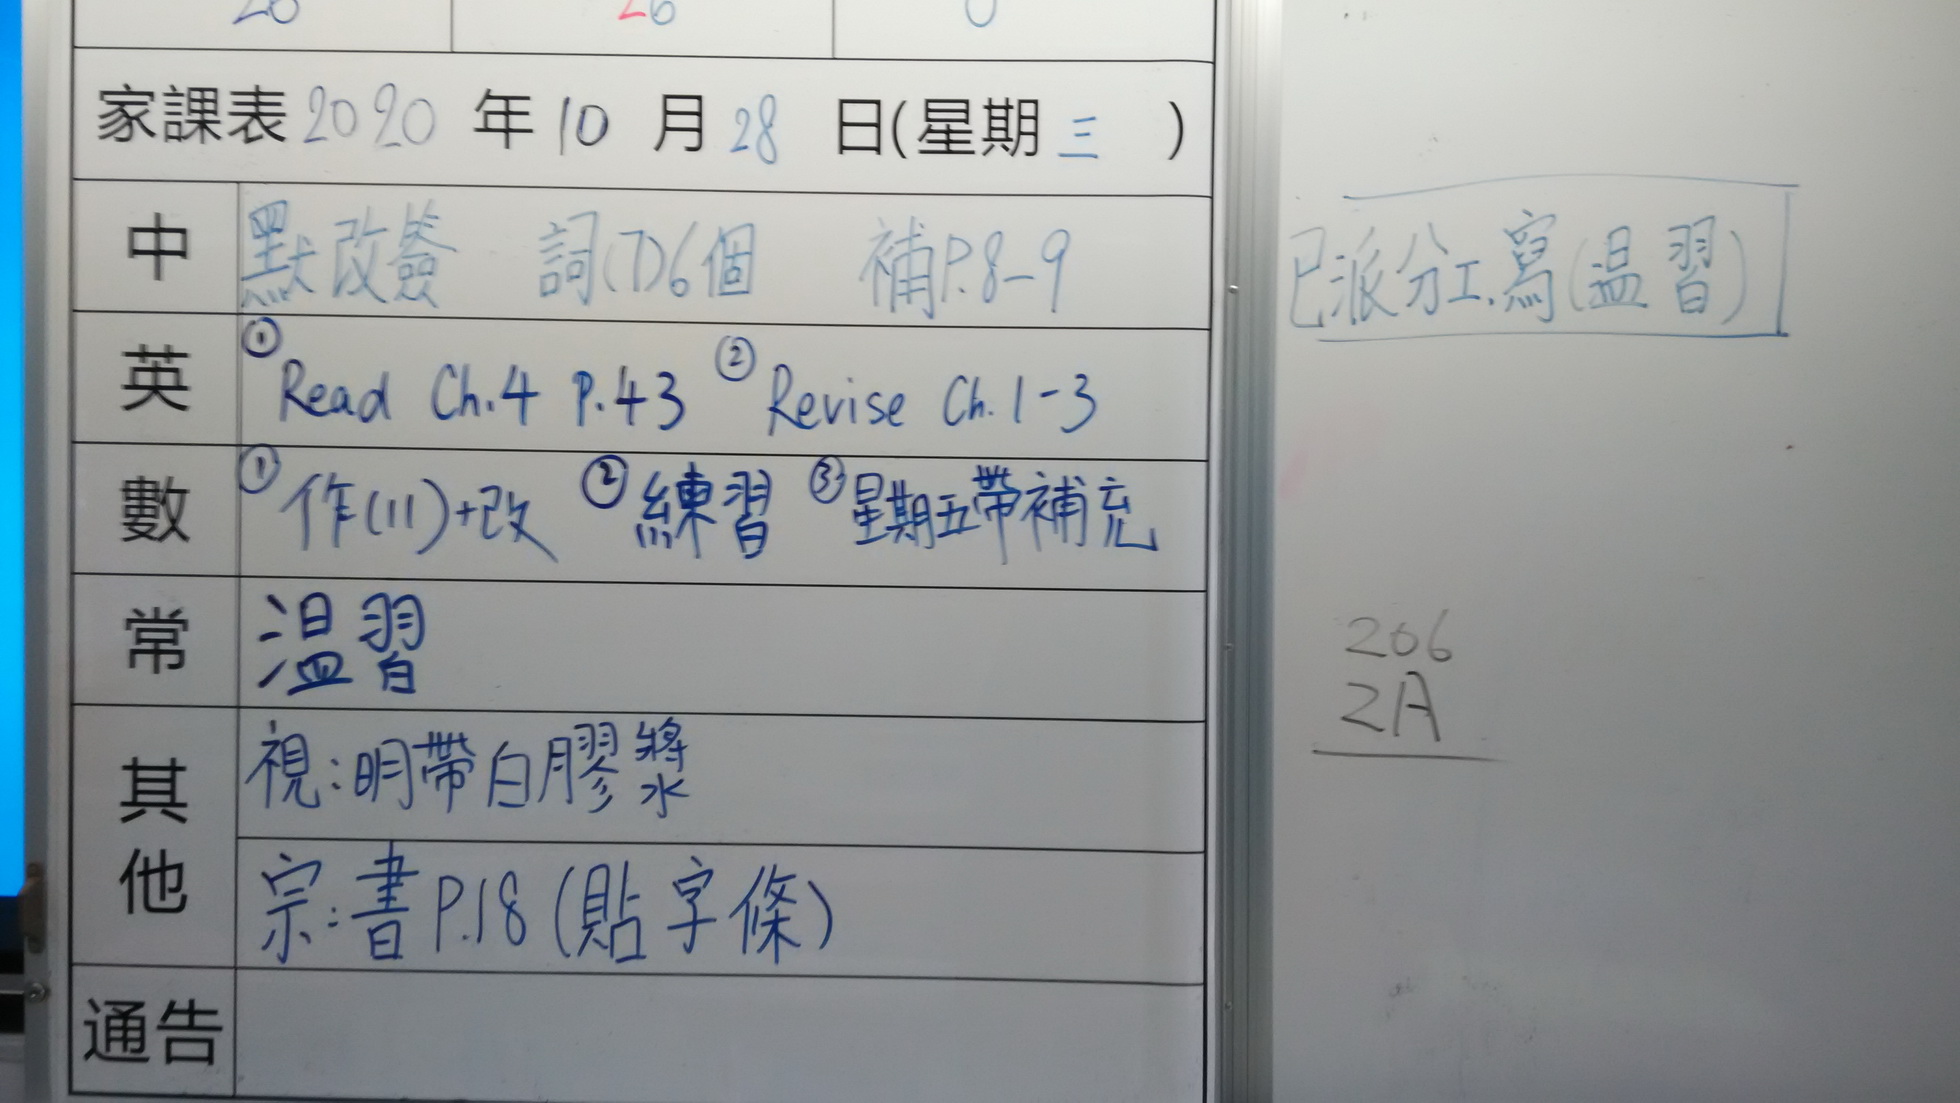 26
家課表 2020 年 10 月 28 日(星期 三 )
中 默改簽 詞(7)6個 補P.8-9
英 ①Read Ch.4 P.43 ②Revise Ch.1-3
數 ①作(11)+改 ②練習 ③星期五帶補充
常 溫習
其他
視:明帶白膠漿
宗:書P.18(貼字條)
通告
已派分工.寫(温習)
206
2A